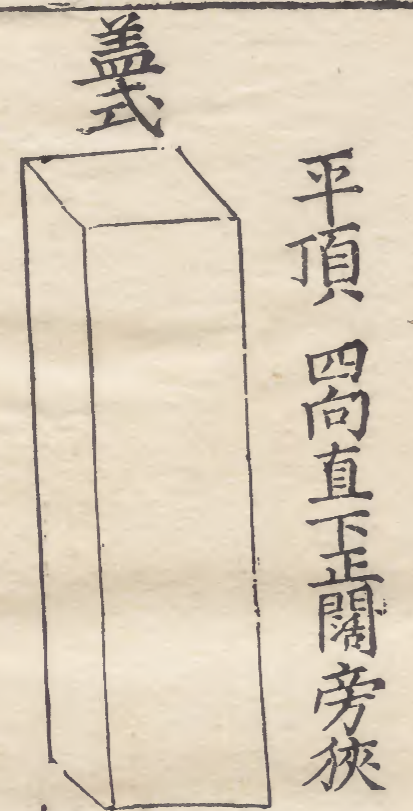 平頂 四向直下正闊旁狹
盖式